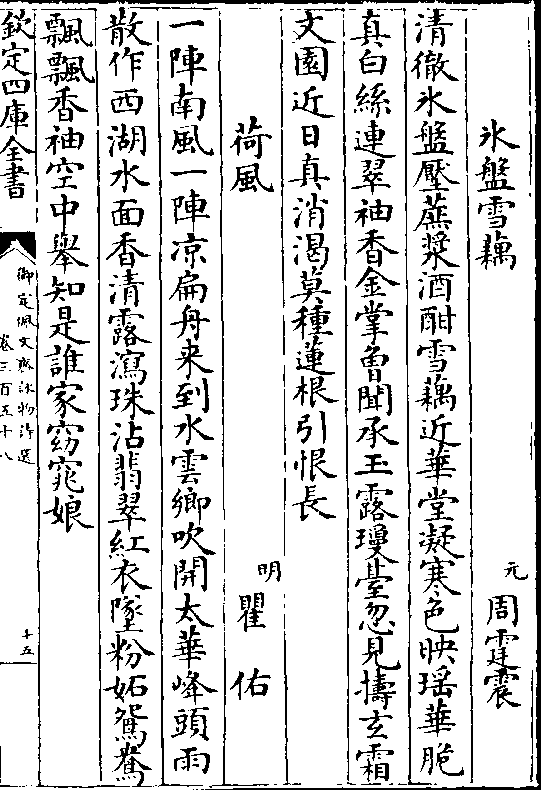 氷盤雪藕 元 周霆震
清徹氷盤壓蔗漿酒酣雪藕近華堂凝寒色映瑶華脆
真白絲連翠袖香金掌曽聞承玉露瓊臺忽見擣玄霜
文園近日真消渴莫種蓮根引恨長
荷風 明 瞿佑
一陣南風一陣凉扁舟来到水雲鄉吹開太華峰頭雨
散作西湖水面香清露瀉珠沾翡翠紅衣墜粉妬鴛鴦
飄飄香袖空中舉知是誰家窈窕娘
欽定四庫全書 御定佩文齋詠物詩選 卷三百五十八 十五